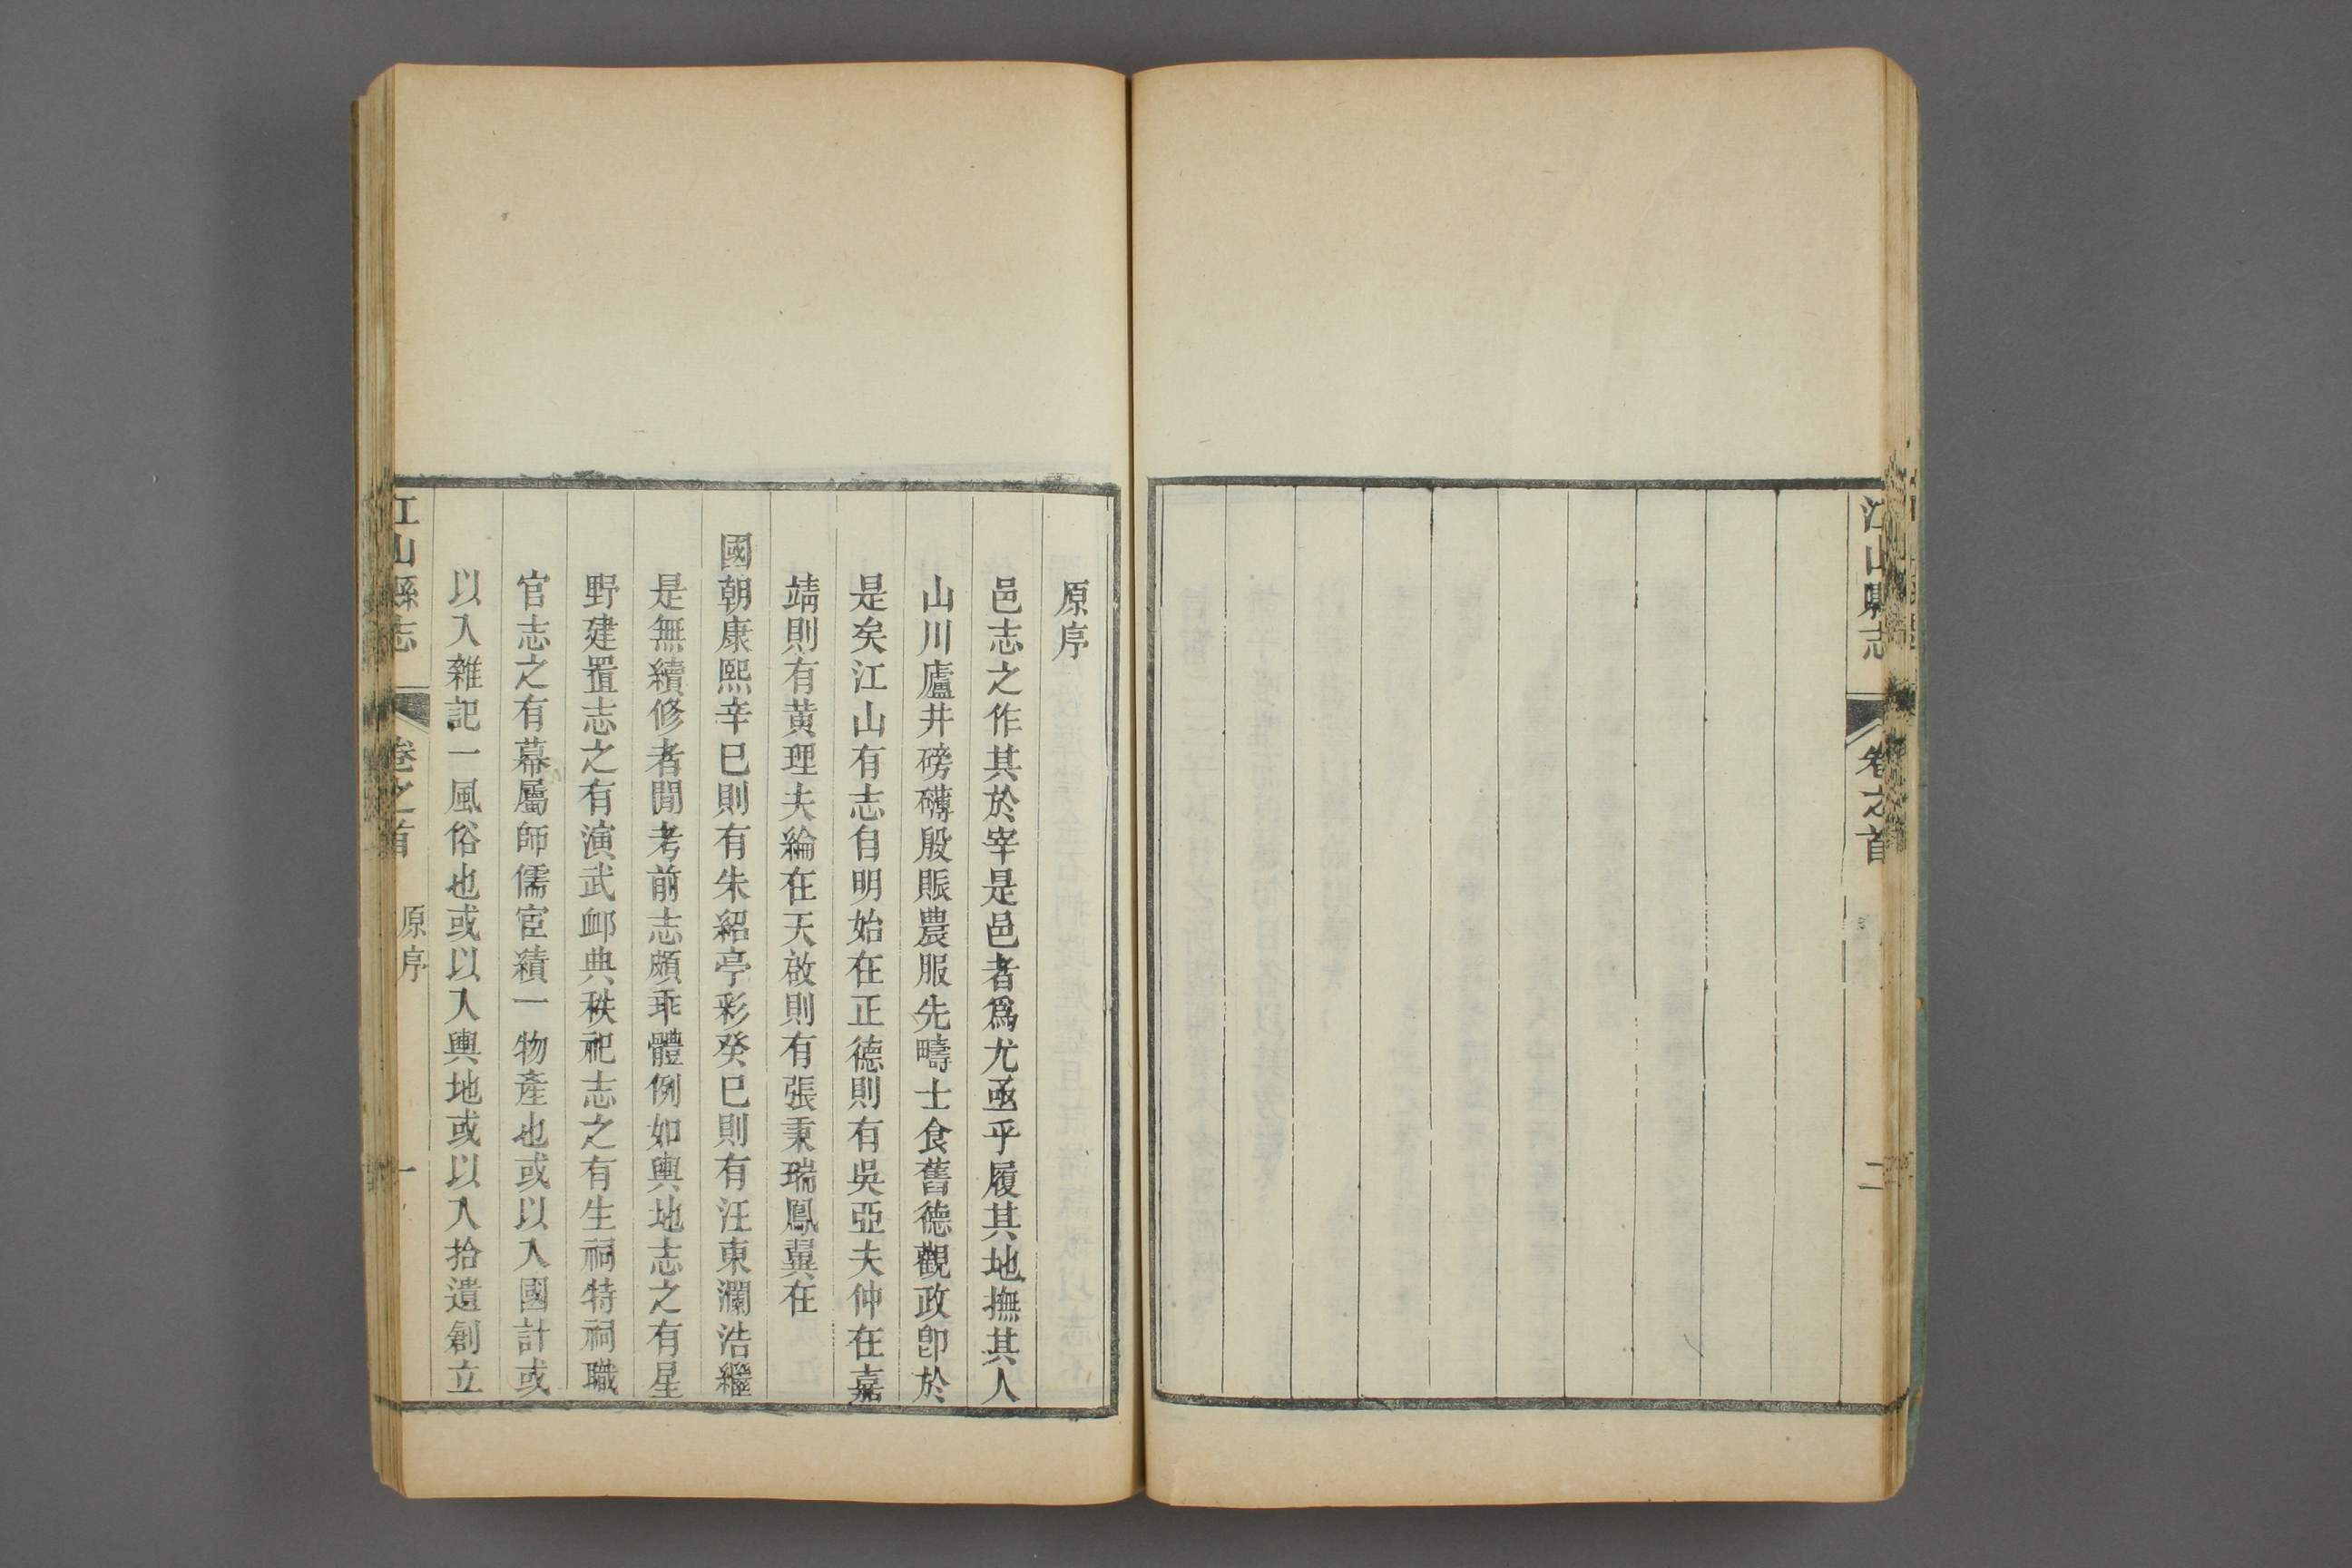 江山縣志
卷之首
二
原序
邑志之作其於宰是邑者爲尤亟乎履其地撫其人
山川廬井磅礴殷賑農服先疇士食舊德觀政卽於
是矣江山有志自明始在正德則有吳亞夫仲在嘉
靖則有黃理夫綸在天啟則有張秉瑞鳳翼在
國朝康熙辛巳則有朱紹亭彩癸巳則有汪東瀾浩繼
是無續修者閒考前志頗乖體例如輿地志之有星
野建置志之有演武䘏典秩祀志之有生祠特祠職
官志之有幕屬師儒宦績一物產也或以入國計或
以入雜記一風俗也或以入輿地或以入拾遺創立
江山縣志
卷之首
原序
一